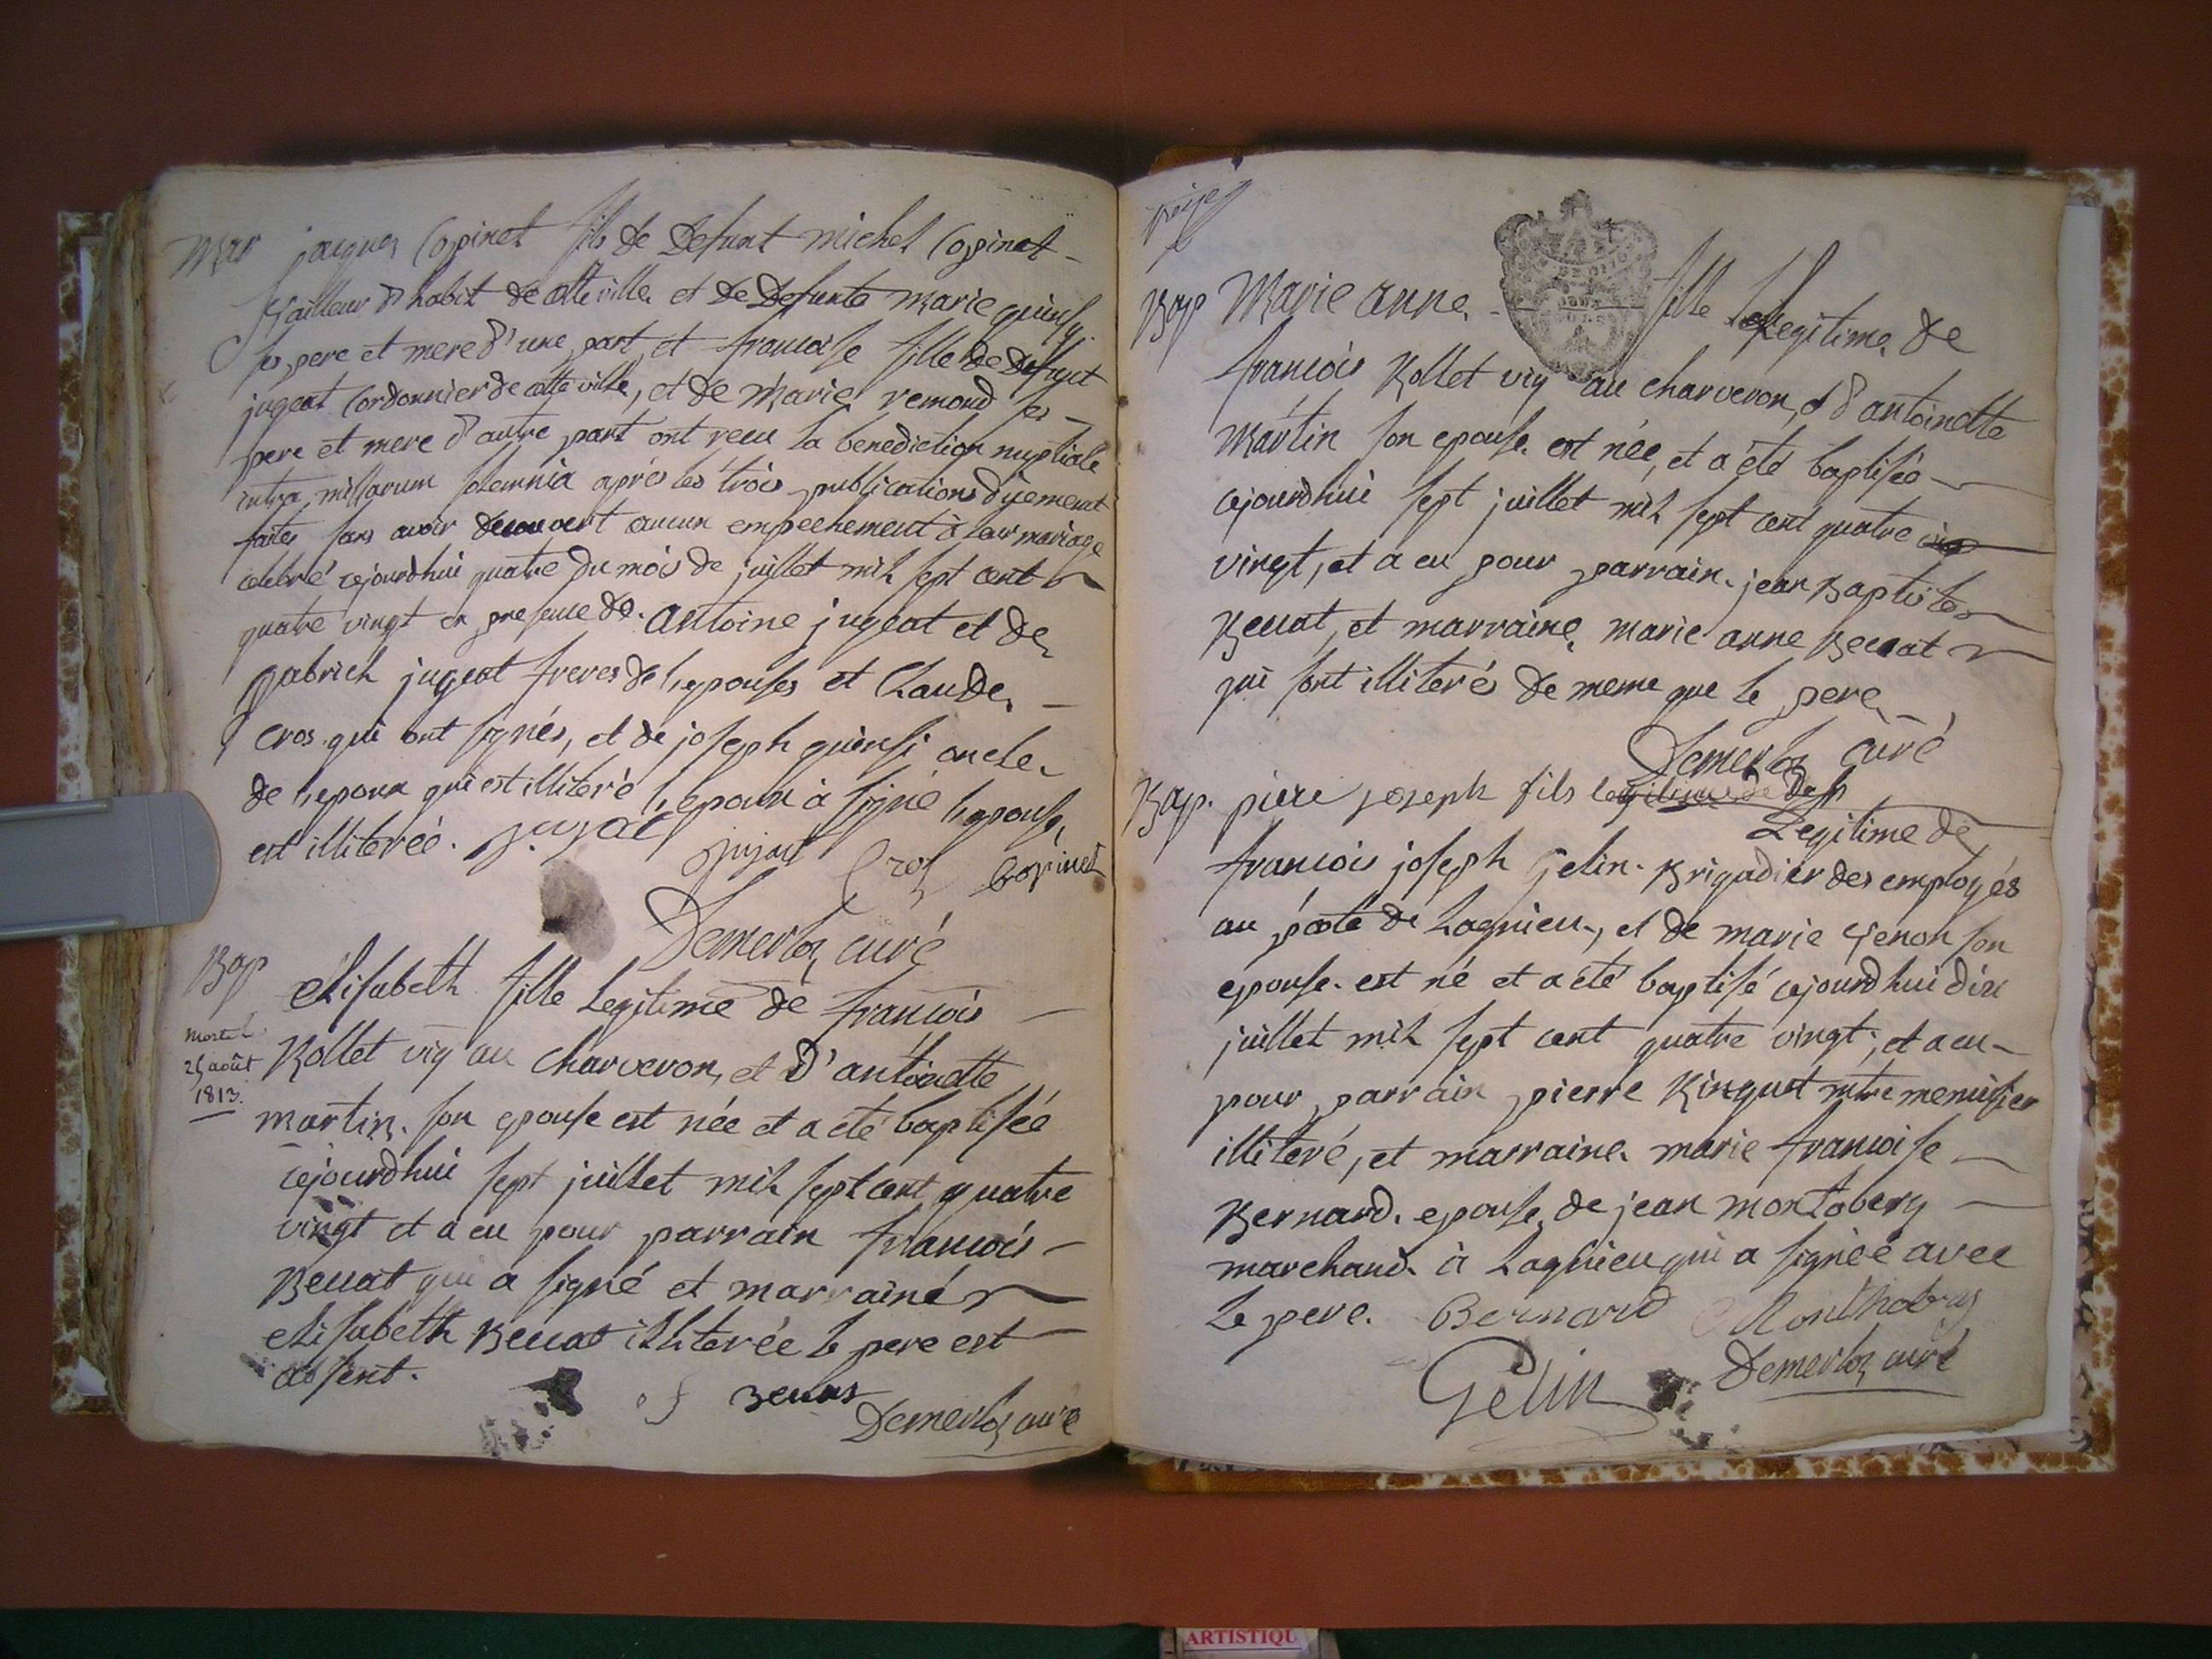 Mar jacques Copinet fils de Defunt michel Copinet
tailleur d'habit de cette ville et de Defunte Marie quinsy
ses pere et mere d'une part et francoise fille de Defunt
jugeat Cordonnier de cette ville, et de Marie remond ses
pere et mere d'autre part ont recu la benediction nuptiale
intra missarum solemnia aprés les trois publications düement
faites sans avoir decouvert aucun empechement à leur mariage
celebré cejourdhui quatre du mois de juillet mil sept cent
quatre vingt en presence de antoine jugeat et de
gabriel jugeat freres de l'epouse et Claude
cros qui ont signés, et de joseph quinsi oncle
de l'epoux qui est illiteré l'epoux a signé l'epouse
est illiterée. jujat jujat Cros Copinet
Demerloz curé
Bap elisabeth fille legitime de francois
morte le
25 août
1813.
Rollet vig au charveron, et D'antoinette
martin son epouse est née et a été baptisée
cejourdhui sept juillet mil sept cent quatre
vingt et a eu pour parrain francois
Beuat qui a signé et marraine
elisabeth Beuat illiterée le pere est
absent.
f beuat
Demerloz curé
Bap Marie anne fille legitime de
francois Rollet vig au charveron, et d'antoinette
Martin son epouse est née, et a été baptisée
cejourdhui sept juillet mil sept cent quatre
vingt, et a eu pour parrain jean Baptiste
Beuat, et marraine marie anne Beuat
qui sont illiterés de meme que le pere
Demerloz curé
Bap. piere joseph fils legitime de
Legitime de
francois joseph Gelin Brigadier des employés
au poste de Lagnieu, et de marie Genon son
epouse est né et a été baptisé cejourdhui dix
juillet mil sept cent quatre vingt, et a eu
pour parrain pierre Ringuet mtre menuisier
illiteré, et marraine marie francoise
Bernard epouse de jean montobery
marchand à Lagnieu qui a signée avec
le pere. Bernard Monthobry
Gelin Demerloz curé
ARTISTIQU